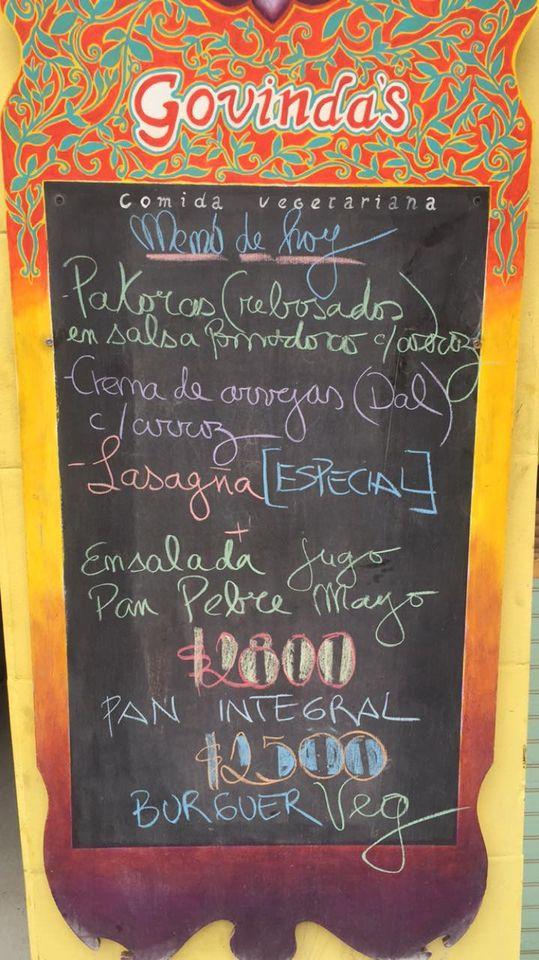 Govinda's
comida vegetariana
Menú de hoy
-Pakoras (rebosados)
en salsa Pomodoro c/arroz
-Crema de arvejas (Dal)
c/arroz
-Lasagña [ESPECIAL]
+
Ensalada jugo
Pan Pebre Mayo
$2800
PAN INTEGRAL
$2500
BURGUER Veg